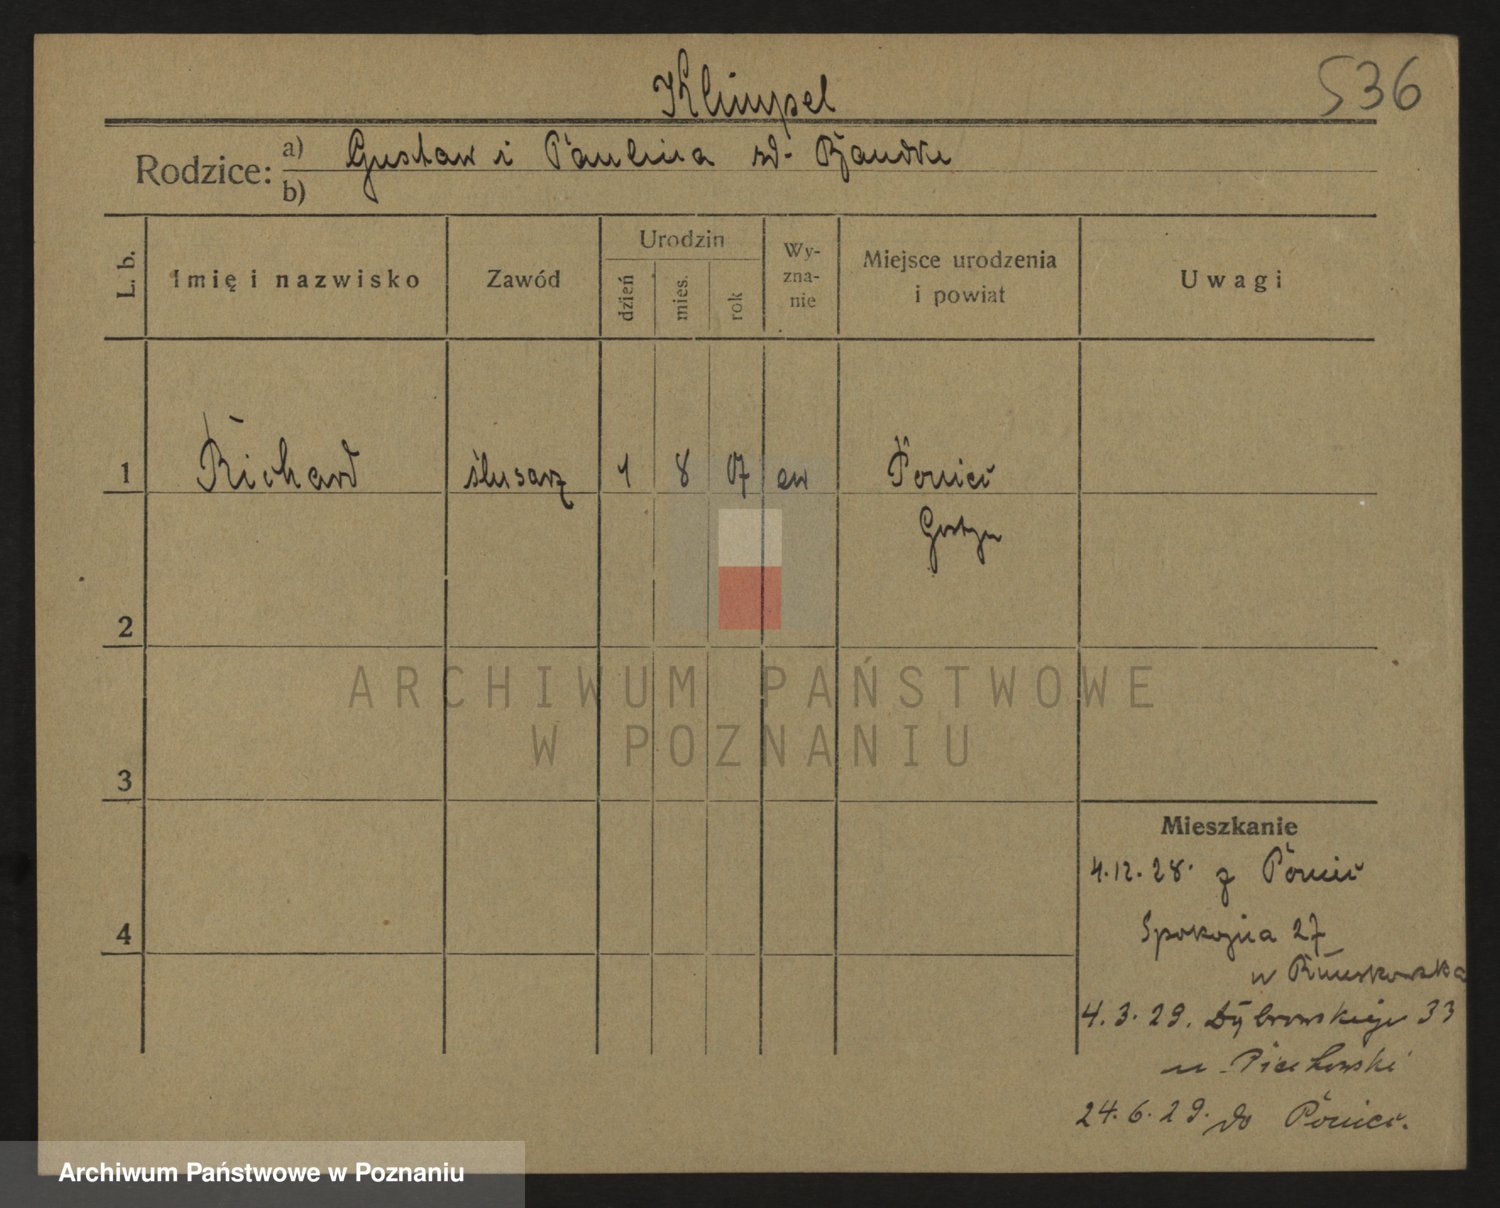 536
Klimpel
Rodzice: a) Gustaw i Paulina zd.
b)
L. b. Imię i nazwisko Zawód Urodzin dzień mies. rok Wy-zna-nie Miejsce urodzenia i powiat Uwagi
1 Richard ślusarz 1 8 07 ew Poniec
Gostyn
2
3
4
Mieszkanie
4.12.28. z Poniec
Spokojna 27
u
4.3.29. Dąbrowskiego 33
u. Piechowski
24.6.29. do Poniec.
ARCHIWUM PAŃSTWOWE
W POZNANIU
Archiwum Państwowe w Poznaniu